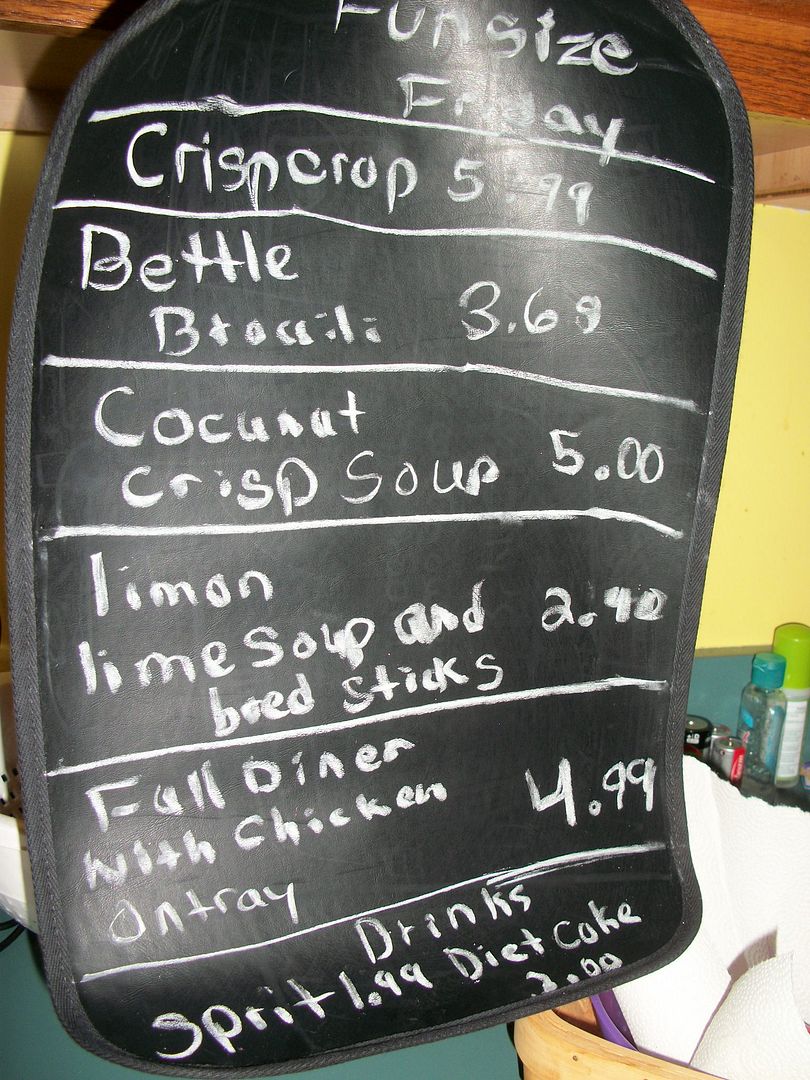 Funsize
Friday
Crispcrop 5.99
Bettle
Broccili 3.68
Cocunut
crisp Soup 5.00
limon
lime Soup and 2.40
bred sticks
Fall Diner
with chicken 4.99
Ontray
Drinks
Sprit 1.99 Diet Coke
2.00